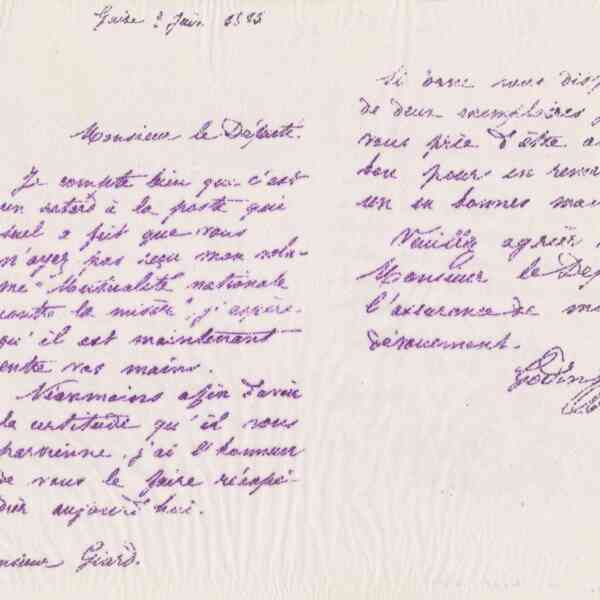 Guise 2 Juin 1883
Monsieur le Député.
Je compte bien que c'est
un retard à la poste qui
seul a fait que vous
n'ayez pas reçu mon volu-
me "Mutualité nationale
contre la misère"; j'espère
qu'il est maintenant
entre vos mains.
Néanmoins afin d'avoir
la certitude qu'il vous
parvienne, j'ai l'honneur
de vous le faire réexpé-
dier aujourd'hui.
Monsieur Giard.
Si donc vous disp
de deux exemplaires j
vous prie d'être a
bon pour en reme
un en bonnes mai
Veuillez agréer
Monsieur le Dép
l'assurance de m
dévouement.
Godin